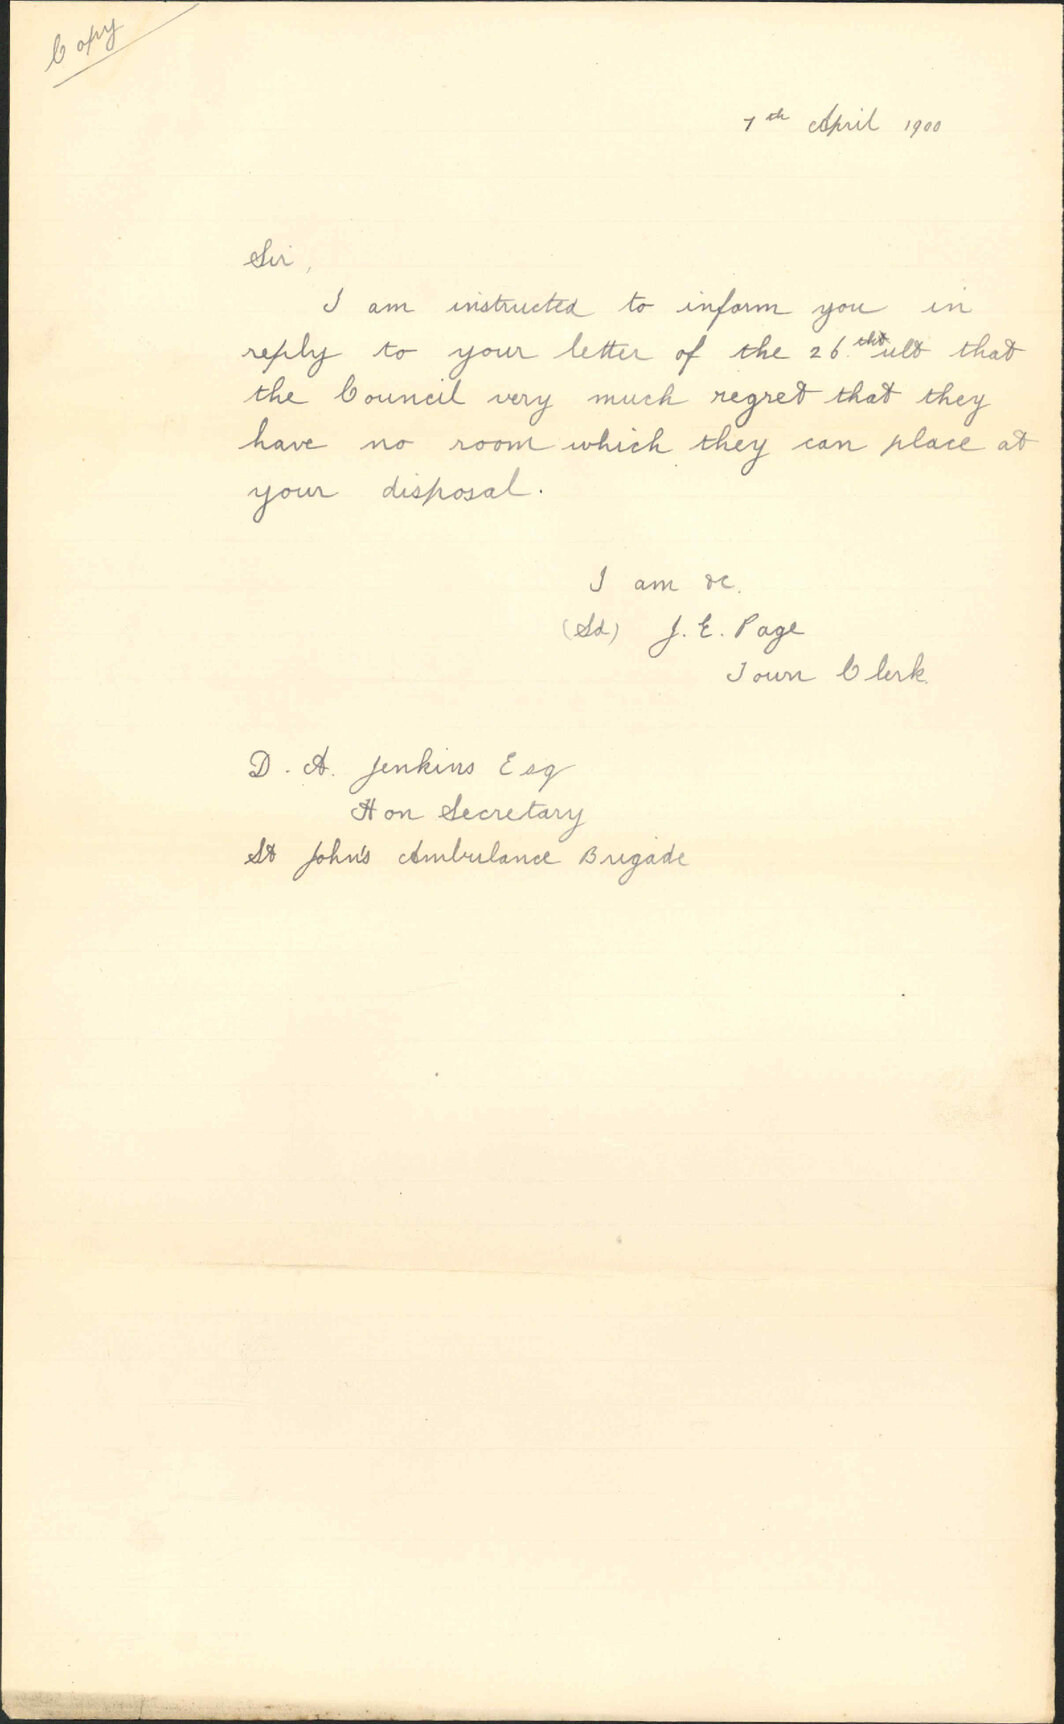 Copy
7th April 1900
Sir,
I am instructed to inform you in
reply to your letter of the 26th ult that
the Council very much regret that they
have no room which they can place at
your disposal.
I am &c.
(Sd) J. E. Page
Town Clerk.
D. A. Jenkins Esq
Hon Secretary
St John's Ambulance Brigade